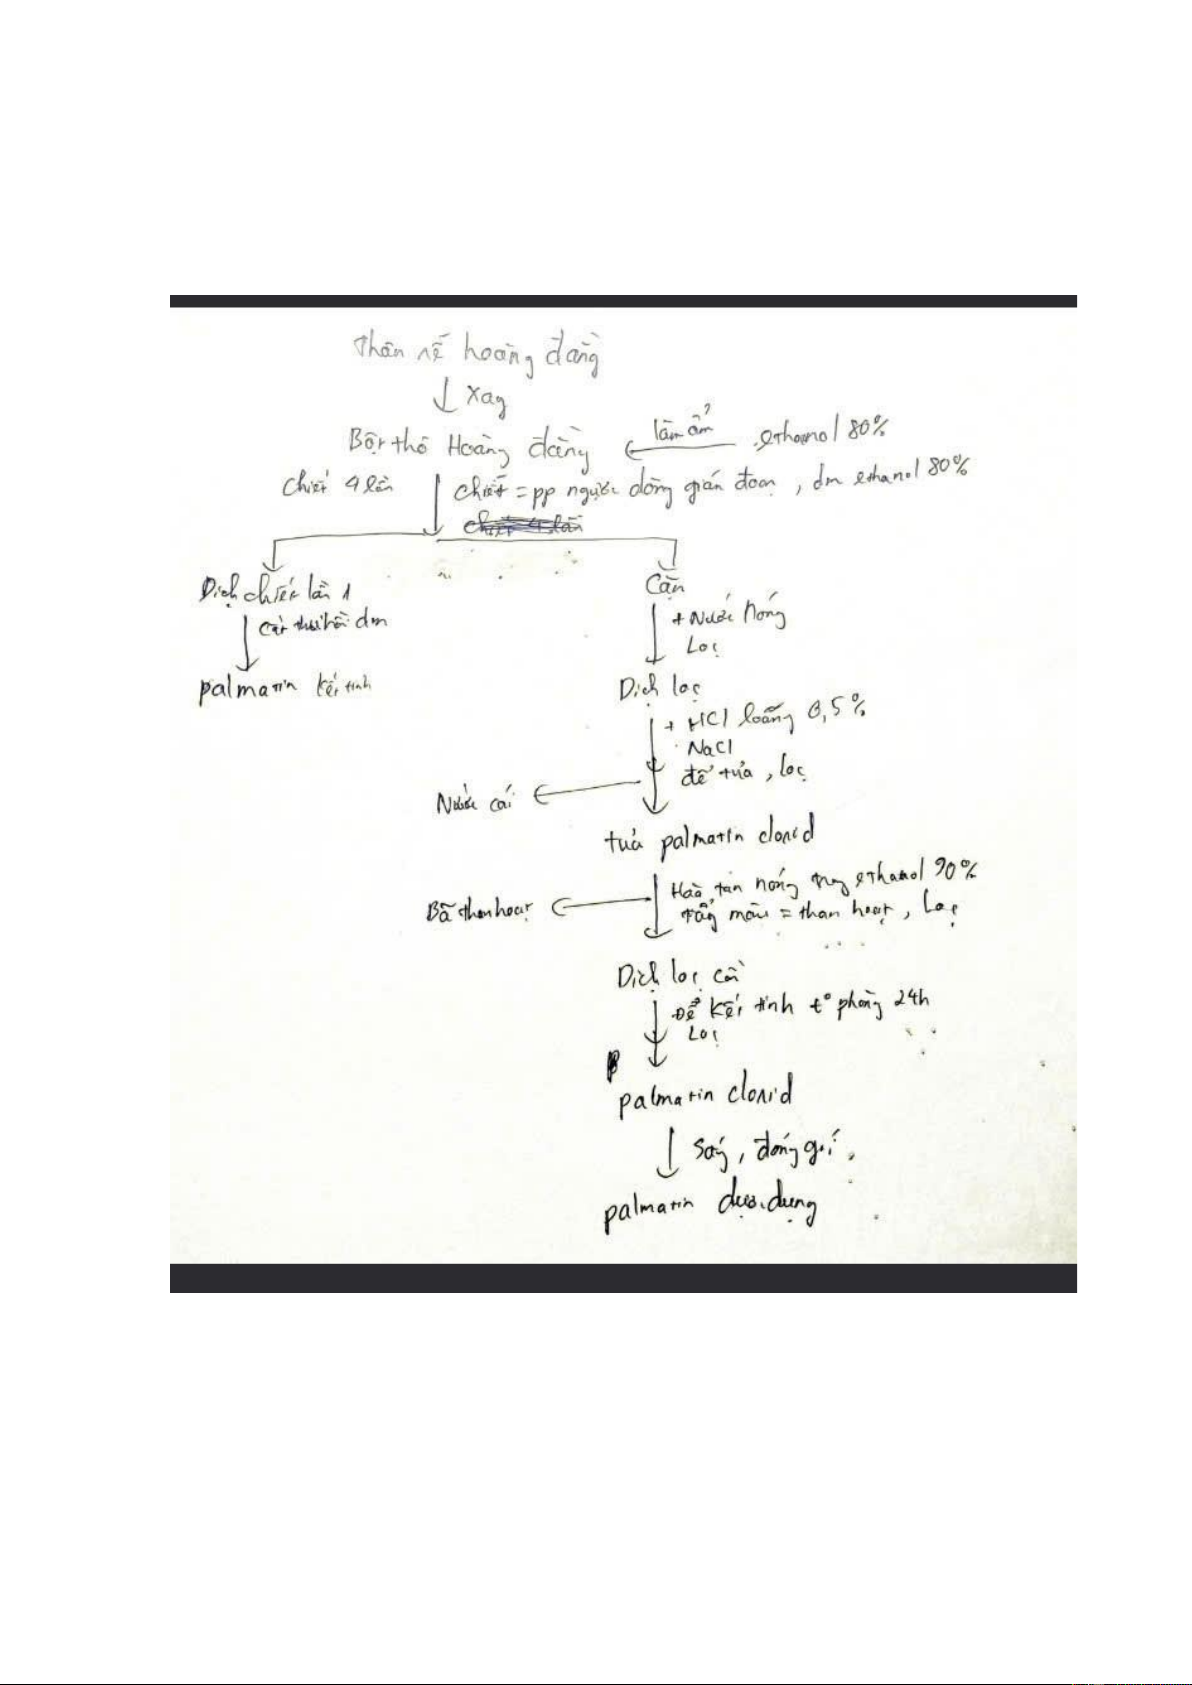 Thân rễ hoàng đằng
Xay
Bột thô Hoàng đằng
làm ẩm
ethanol 80%
Chiết 4 lần
Chiết = pp ngược dòng gián đoạn, dm ethanol 80%
chiết 4 lần
Dịch chiết lần 1
Cất thu hồi dm
palmatin kết tinh
Cặn
+ Nước nóng
Lọc
Dịch lọc
+ HCl loãng 0,5%
NaCl
để tủa, lọc
Nước cái
tủa palmatin clorid
Hoà tan nóng trong ethanol 90%
tẩy màu = than hoạt, Lọc
Bã than hoạt
Dịch lọc cồn
Để kết tinh t° phòng 24h
Lọc
palmatin clorid
Sấy, đóng gói
palmatin dược dụng